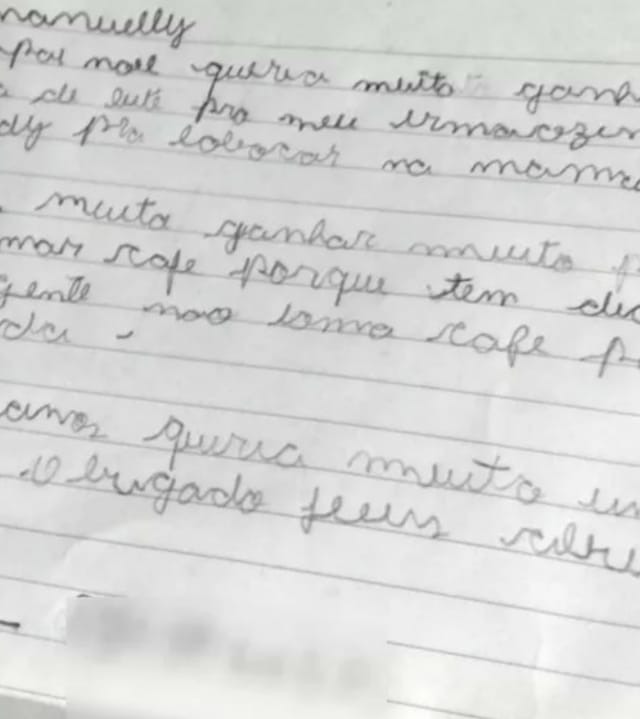 manuelly
pai noel queria muito ganh
a de leite pro meu irmaozin
dy pra colocar na mama
muito ganhar muito p
mar cafe porque tem dia
gente nao toma cafe p
da.
anos queria muito um
Obrigado feliz